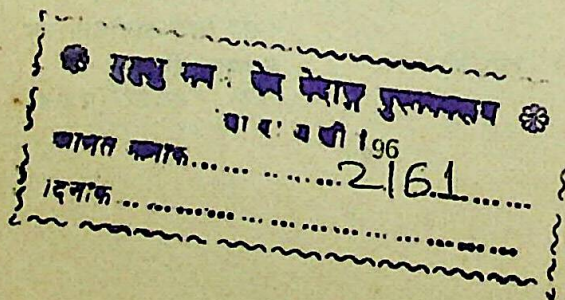 ❀ मुमुक्षु भवन वेद वेदाङ्ग पुस्तकालय ❀
वा रा ण सी । 96
आगत क्रमाक...... .. ... ....2161......
दिनांक .. ... ......... ... ... ... ... ... ... ...